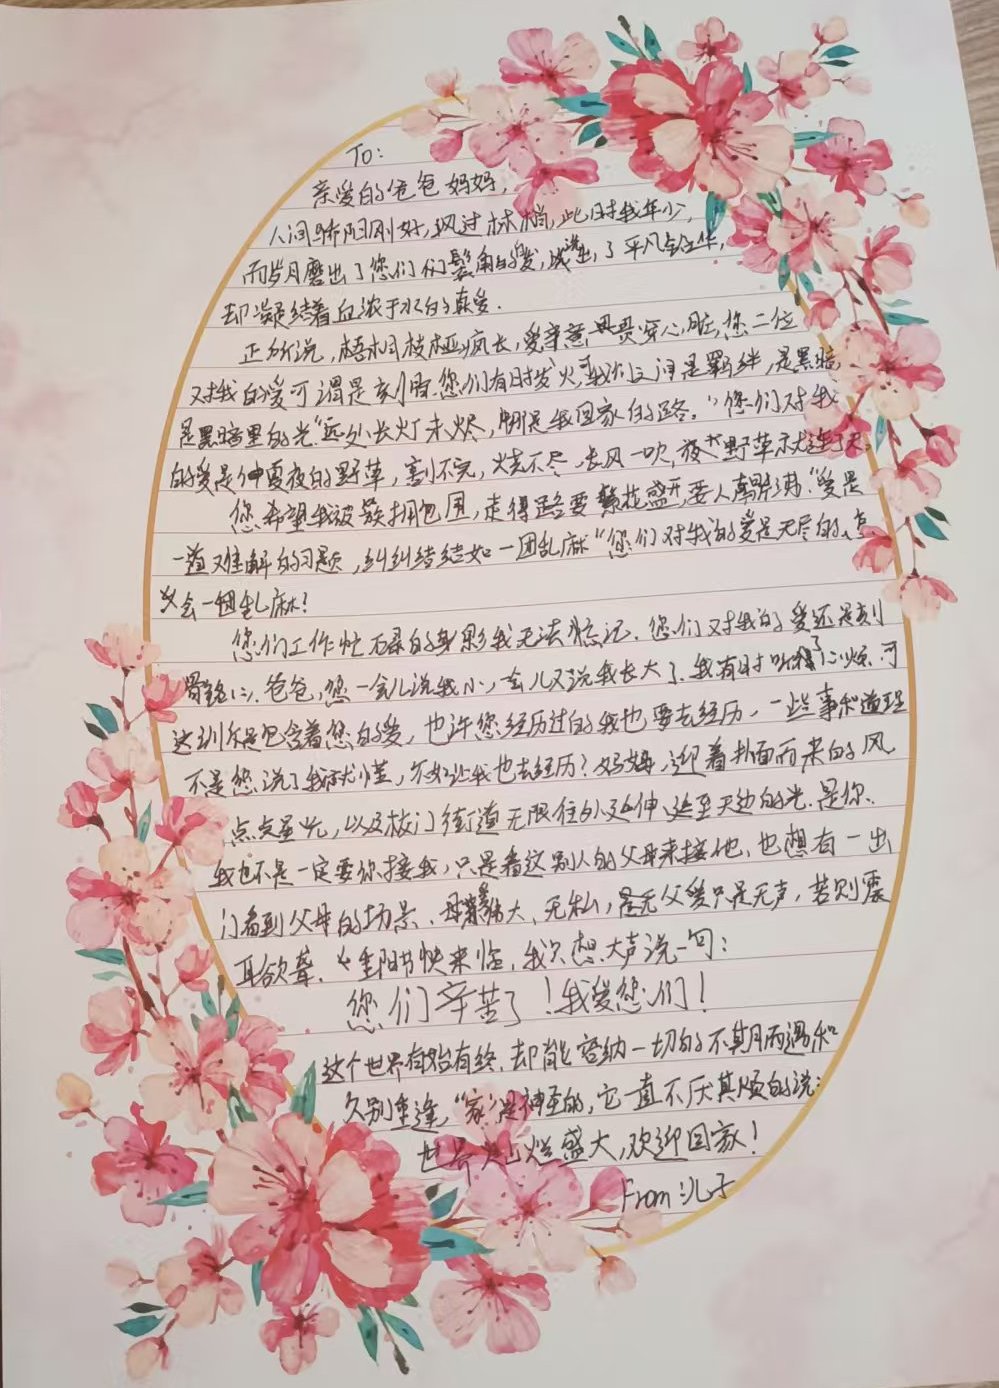 To:
亲爱的爸爸妈妈,
人间骄阳刚好,风过林梢,此时我年少,
而岁月磨出了您们们鬓角的发,谈出了平凡
却凝结着血浓于水的真爱.
正所说,梧桐枝桠疯长,爱意贯穿心脏,您二位
对我的爱可谓是刻骨.您们有时发火,可我们之间是羁绊,是黑暗
是黑暗里的光“远处长灯未烬,那是我回家的路.”您们对我
的爱是仲夏夜的野草,割不完,烧不尽,长风一吹,野草就连了天.
您希望我被簇拥包围,走得路要繁花盛开,要人声鼎沸.“爱是
一道难解的习题,纠纠结结如一团乱麻”您们对我的爱是无尽的,怎
么会一团乱麻!
您们工作忙碌的身影我无法忘记.您们对我的爱还是刻
骨铭心.爸爸,您一会儿说我小,一会儿又说我长大了.我有时听得心烦.可
这训斥是包含着您的爱,也许您经历过的我也要去经历,一些事和道理
不是您说了我就懂,不如让我也去经历?妈妈,迎着扑面而来的风
点点星光,以及校门街道无限往外延伸延至天边的光.是你.
我也不是一定要你接我,只是看这别人的父母来接他,也想有一出
门看到父母的场景.母爱伟大,无私,父爱只是无声,若则震
耳欲聋.重阳节快来临,我只想大声说一句:
您们辛苦了!我爱您们!
这个世界有始有终,却能容纳一切的不期而遇和
久别重逢,“家”是神圣的,它一直不厌其烦的说:
世界灿烂盛大,欢迎回家!
From:儿子